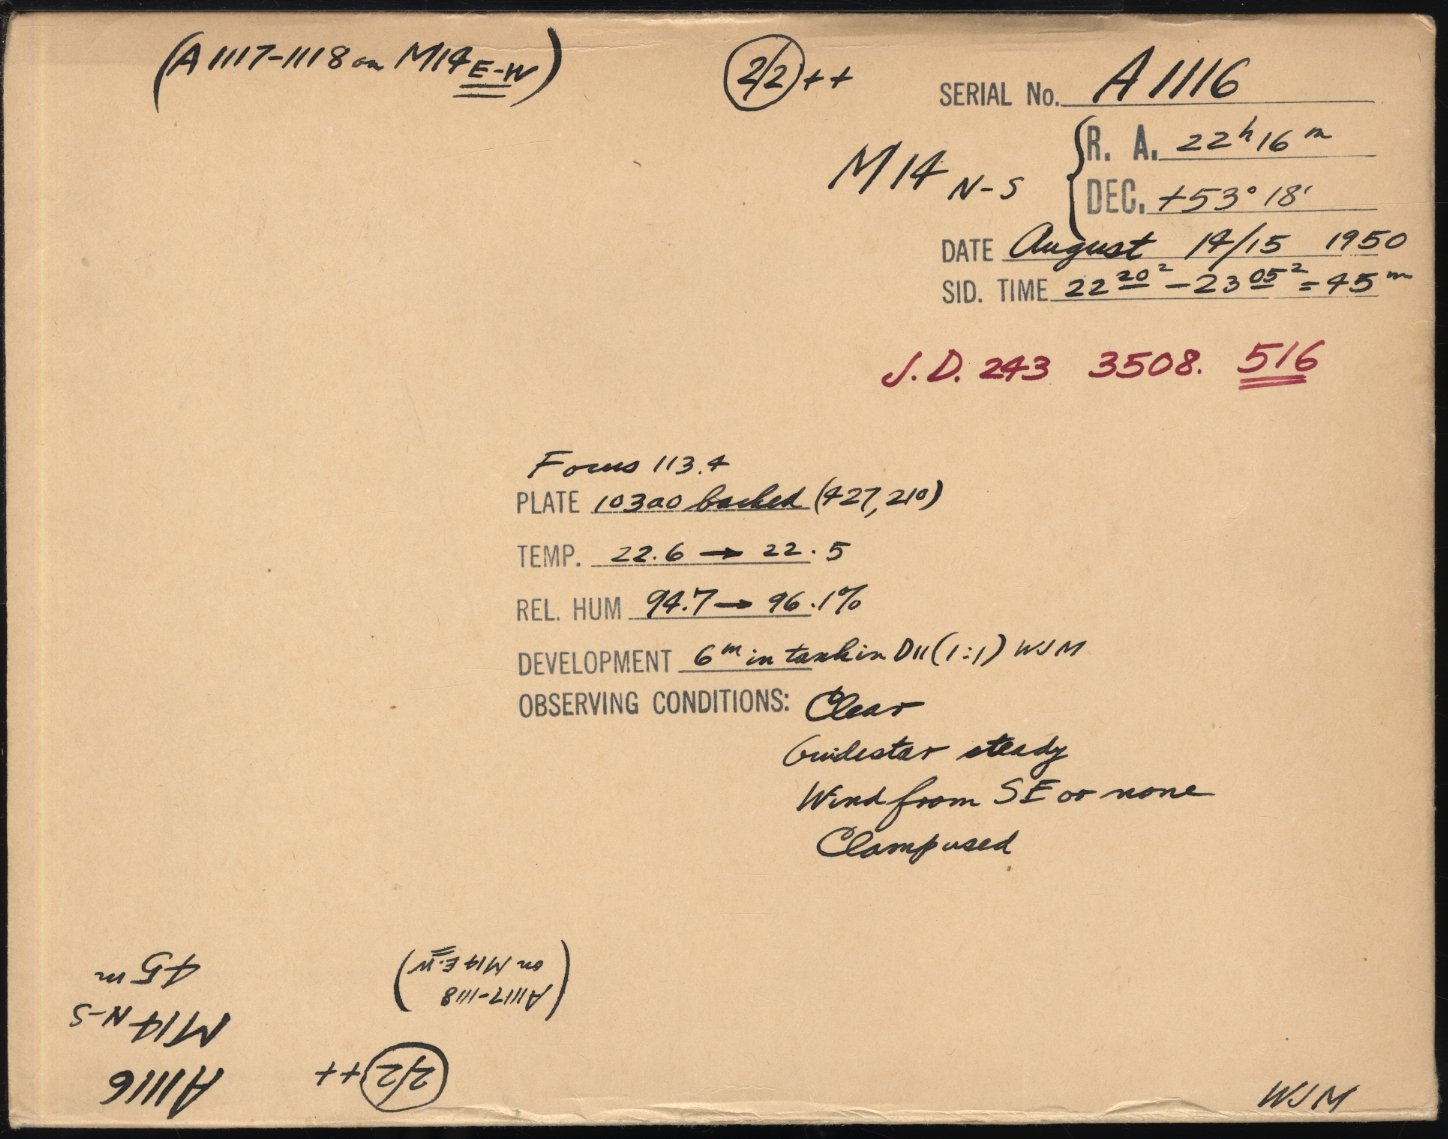 (A1117-1118 on M14 E-W)
2/2 ++
SERIAL No. A1116
M14 N-S
R. A. 22h 16m
DEC. +53° 18'
DATE August 14/15 1950
SID. TIME 22 20² - 23 05² = 45m
J.D. 243 3508. 516
Focus 113.4
PLATE 103aO backed (427, 210)
TEMP. 22.6 → 22.5
REL. HUM 94.7 → 96.1%
DEVELOPMENT 6m in tank in D11 (1:1) WJM
OBSERVING CONDITIONS: Clear
Guidestar steady
Wind from SE or none
Clamp used
A1116
M14 N-S
45m
2/2 ++
(A1117-1118
on M14 E-W)
WJM